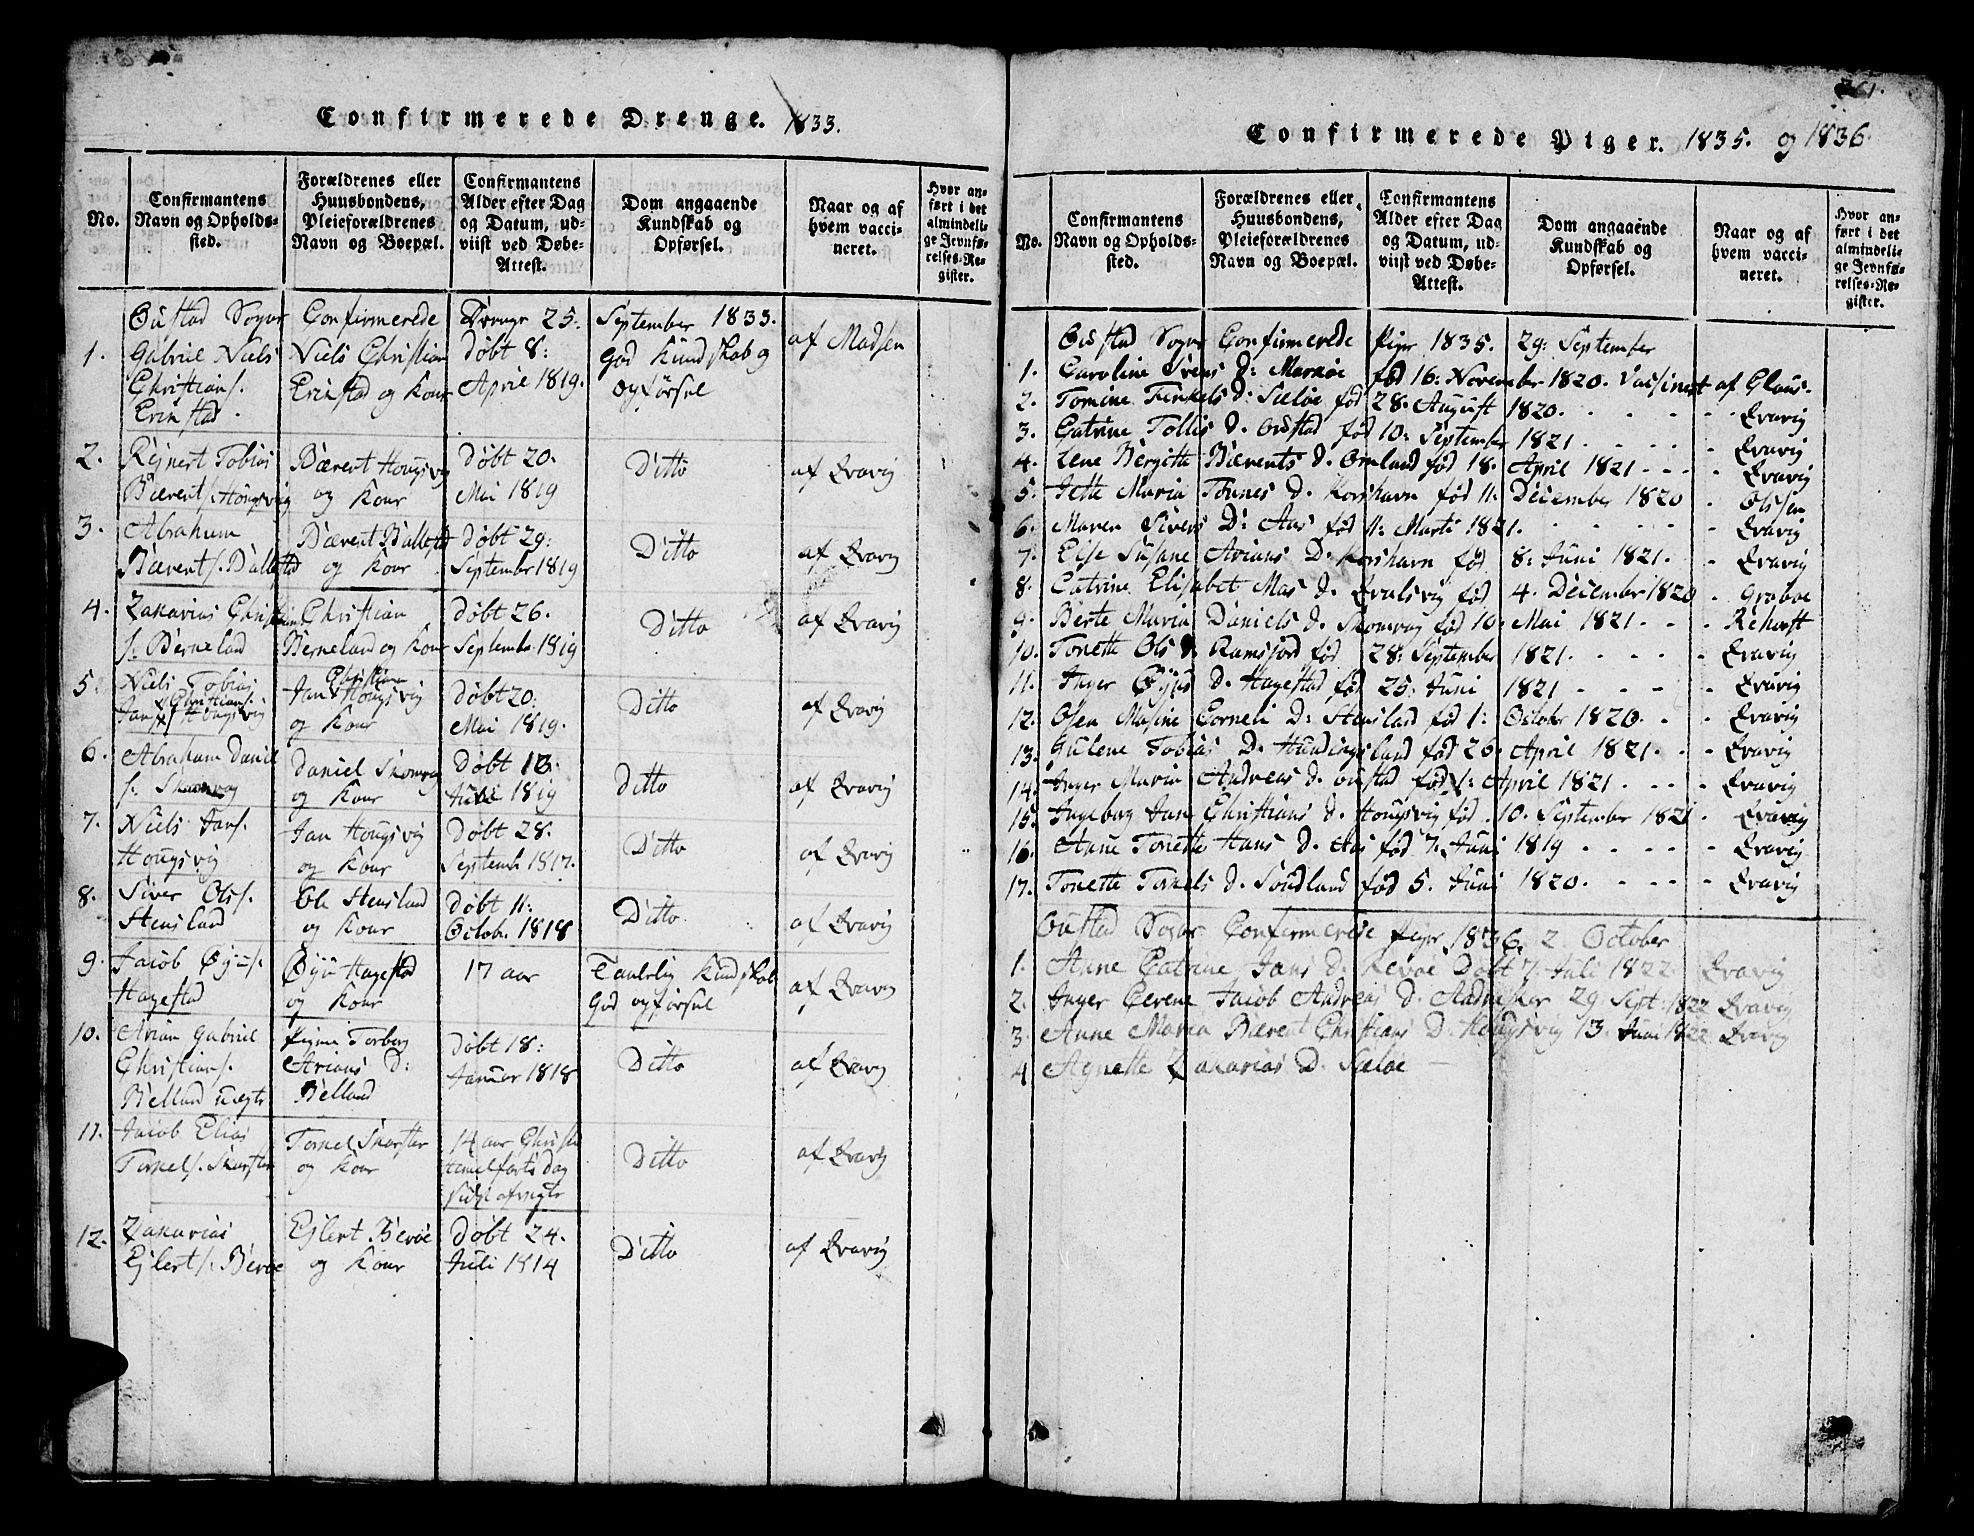 Confirmerede Drenge. 1833.
No.
Confirmantens Navn og Opholds-sted.
Forældrenes eller Huusbondens, Pleieforældrenes Navn og Boepæl.
Confirmantens Alder efter Dag og Datum, ud-viist ved Døbe-Attest.
Dom angaaende Kundskab og Opførsel.
Naar og af hvem vacci-neret.
Hvor an-ført i det almindeli-ge Jevnfø-relses-Re-gister.
Oustad Sogns Confirmerede Drenge 25. September 1833.
1. Gabriel Niels Christians. Erikstad. Niels Christian Erikstad og Kone døbt 8: April 1819. God Kundskab og Opførsel af Madsen
2. Rejnert Tobias Bærents. Hougsvig Bærent Hougsvig og Kone Døbt 20. Mai 1819 Ditto af Qvavig
3. Abraham Bærents. Ballestad Bærent Ballestad og Kone Døbt 29: Septembr 1819 Ditto af Qvavig
4. Zakarias Christians. Berneland Christian Berneland og Kone Døbt 26. Septembr 1819 Ditto af Qvavig
5. Niels Tobias Jans Christians. Hougsvig Jan Christian Hougsvig og Kone Døbt 20: Mai 1819. Ditto af Qvavig
6. Abraham Daniels. Skomvog Daniel Skomvog og Kone Døbt 1819 Ditto af Qvavig
7. Niels Jans. Hougsvig Jan Hougsvig og Kone Døbt 28. Septemb. 1817. Ditto af Qvavig
8. Siver Ols. Stensland Ole Stensland og Kone Døbt 11: Octob. 1818 Ditto af Qvavig
9. Jacob Øyus. Hagestad Øyu Hagestad og Kone 17 aar Taalelig Kundskab God opførsel af Qvavig
10. Arian Gabriel Christians. Belland uegte Pigen Torborg Arians D: Belland Døbt 18: Januar 1818 Ditto af Qvavig
11. Jacob Elias Torkels. Skarster Torkel Skarster og Kone 14 aar Christi Himelfarts dag Ditto af Qvavig
12. Zakarias Ejlerts. Berøe Ejlert Berøe og Kone Døbt 24. Juli 1814 Ditto af Qvavig
261.
Confirmerede Piger. 1835. og 1836.
No.
Confirmantens Navn og Opholds-sted.
Forældrenes eller Huusbondens, Pleieforældrenes Navn og Boepæl.
Confirmantens Alder efter Dag og Datum, ud-viist ved Døbe-Attest.
Dom angaaende Kundskab og Opførsel.
Naar og af hvem vacci-neret.
Hvor an-ført i det almindeli-ge Jevnfø-relses-Re-gister.
Oustad Sogns Confirmerede Piger 1835. 29: September
1. Caroline Svens D: Markøe fød 16: November 1820. Vacsineret af Claus.
2. Tomine Torkels D: Sæløe fød 28. August 1820. Qvavig
3. Catrine Tollis D. Oustad fød 10: September 1821. Qvavig
4. Lene Bergitte Bærents D. Omland fød 18. April 1821 Qvavig
5. Jette Maria Tønnes D. Korshavn fød 11: December 1820 Olssen
6. Maren Sivers D: Aas fød 11: Marti 1821. Qvavig
7. Else Susane Arians D. Korshavn fød 8: Juni 1821. Qvavig
8. Catrine Elisabet Mas D. Qvalsvig fød 4. December 1820 Graboe
9. Berte Maria Daniels D. Skomvog fød 10: Mai 1821. Rehoft
10. Tonette Ols D. Ramsfjord fød 28: September 1821. Qvavig
11. Inger Øyus D. Hagestad fød 25. Juni 1821 Qvavig
12. Olen Masine Corneli D: Stensland fød 1: October 1820. Qvavig
13. Gulene Tobias D. Hundingsland fød 26. April 1821. Qvavig
14. Inger Maria Andreas D. Oustad fød 1: April 1821. Qvavig
15. Ingeborg Jane Christians D. Hougsvig fød 10. September 1821. Qvavig
16. Anne Tonette Hans D. Aas fød 7. Juni 1819 Qvavig
17. Tonette Torkels D. Sondland fød 5. Juni 1820. Qvavig
Oustad Sogns Confirmerede Piger 1836. 2 October
1. Anne Catrine Jans D. Revøe Døbt 7. Juli 1822 Qvavig
2. Inger Serene Jacob Andreas D. 29 Sept. 1822 Qvavig
3. Anne Maria Bærent Christians D. Hougsvig 13. Juni 1822 Qvavig
4 Agnette Zakarias D. Sæløe